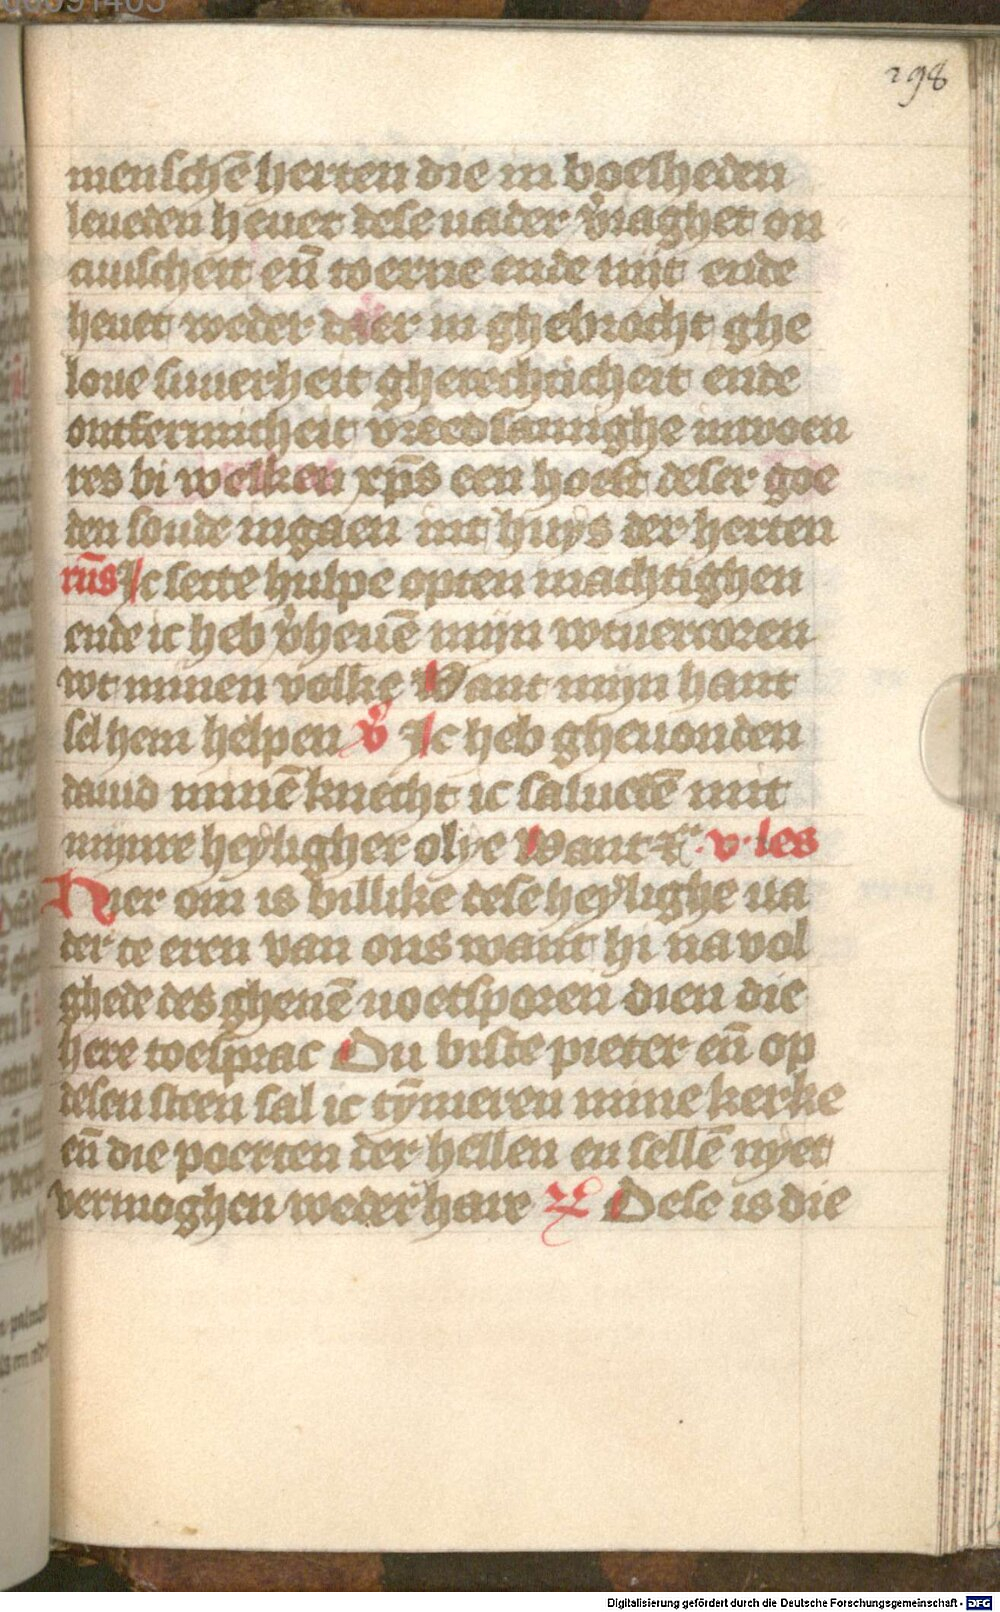 298
menschē herten die in boesheden
leueden heuet dese uader v̾iaghet on
cuuscheit en̄ toerne ende nijt ende
heuet weder daer in ghebrocht ghe
loue suuerheit gherechticheit ende
ontfermicheit vreedsamighe inwoen
res bi welken xp̄s een hoeft deser goe
den soude ingaen int huys der herten
rn̄s Ic sette hulpe opten machtighen
ende ic heb v̾heuē mijn wtuercoren
wt minen volke Want mijn hant
sel hem helpen v̾ Ic heb gheuonden
dauid minē knecht ic saluedē mit
mijnre heyligher olye Want v les
Hier om is billike dese heylighe ua
der te eren van ons want hi na vol
ghede des gheuē uoetsporen dien die
here toesprac Du biste pieter en̄ op
desen steen sal ic tȳmeren mine kerke
en̄ die poerten der hellen en sellē nyet
vermoghen weder hare R Dese is die
Digitalisierung gefördert durch die Deutsche Forschungsgemeinschaft - DFG